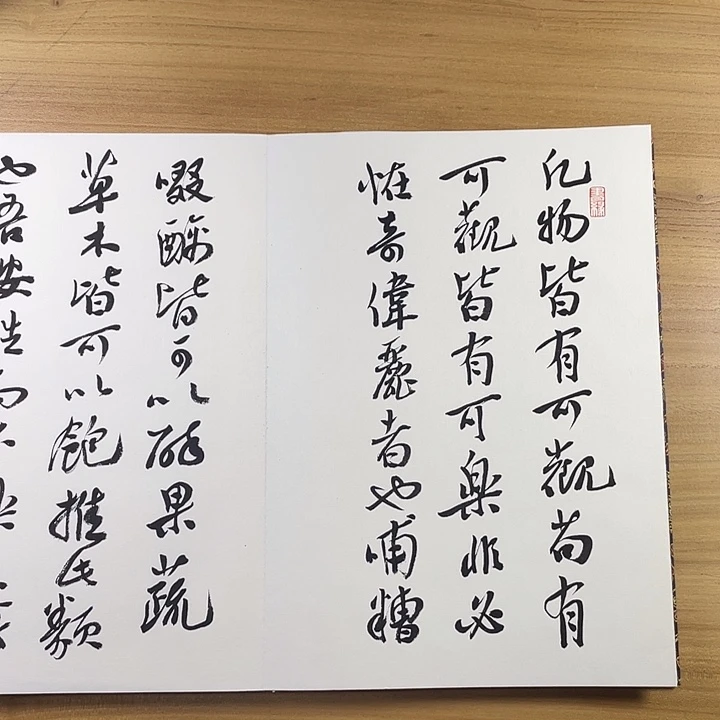 凡物皆有可觀苟有
可觀皆有可樂非必
恠奇偉麗者也哺糟
啜醨皆可以醉果蔬
草木皆可以飽推此類
也吾安往而不